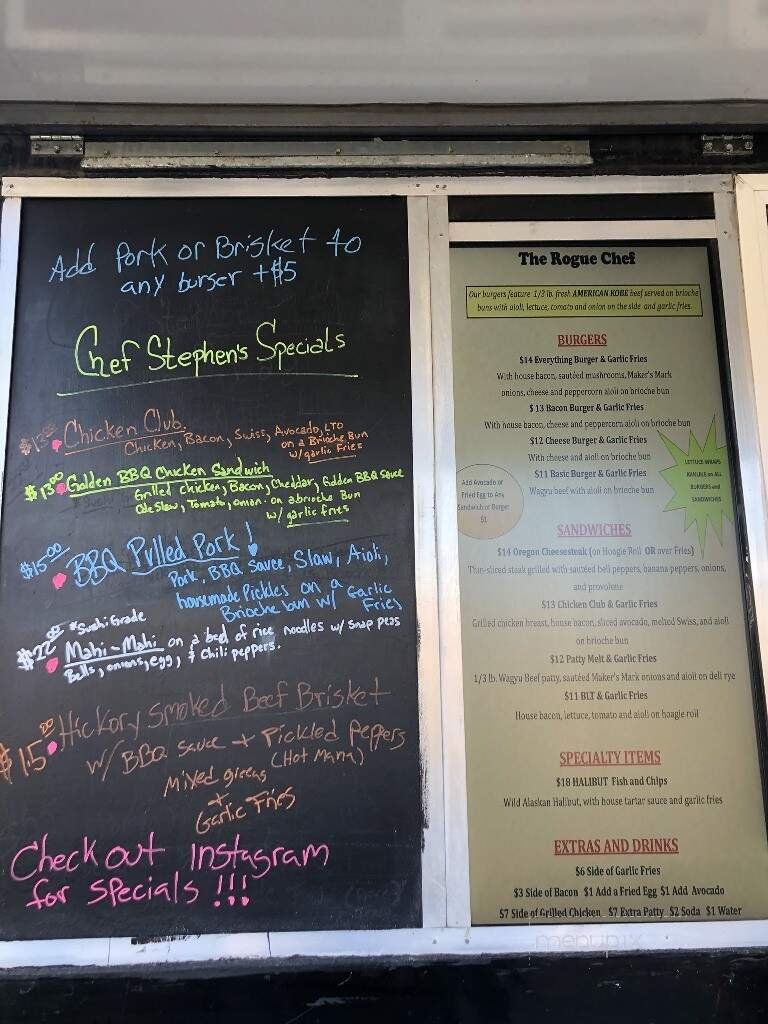 Add Pork or Brisket to
any burger +$5
Chef Stephen's Specials
$13.00 Chicken Club.
Chicken, Bacon, Swiss, Avocado, LTO
on a Brioche Bun
w/ garlic Fries
$13.00 Golden BBQ Chicken Sandwich
Grilled chicken, Bacon, Cheddar, Golden BBQ Sauce
Coleslaw, Tomato, onion. on a brioche Bun
w/ garlic fries
$15.00 BBQ Pulled Pork!
Pork, BBQ sauce, Slaw, Aioli,
housemade Pickles on a
Brioche bun w/ Garlic
Fries
*Sushi Grade
$22.00 Mahi-Mahi on a bed of rice noodles w/ snap peas
Bells, onions, egg, & Chili peppers.
$15.00 Hickory Smoked Beef Brisket
w/ BBQ Sauce + Pickled Peppers
(Hot Mama)
Mixed greens
+
Garlic Fries
Check out Instagram
for specials !!!
The Rogue Chef
Our burgers feature 1/3 lb. fresh AMERICAN KOBE beef served on brioche
buns with aioli, lettuce, tomato and onion on the side and garlic fries.
BURGERS
$14 Everything Burger & Garlic Fries
With house bacon, sautéed mushrooms, Maker's Mark
onions, cheese and peppercorn aioli on brioche bun
$13 Bacon Burger & Garlic Fries
With house bacon, cheese and peppercorn aioli on brioche bun
$12 Cheese Burger & Garlic Fries
With cheese and aioli on brioche bun
$11 Basic Burger & Garlic Fries
Wagyu beef with aioli on brioche bun
LETTUCE WRAPS
AVAILABLE on ALL
BURGERS and
SANDWICHES
Add Avocado or
Fried Egg to Any
Sandwich or Burger
$1
SANDWICHES
$14 Oregon Cheesesteak (on Hoagie Roll OR over Fries)
Thin-sliced steak grilled with sautéed bell peppers, banana peppers, onions,
and provolone
$13 Chicken Club & Garlic Fries
Grilled chicken breast, house bacon, sliced avocado, melted Swiss, and aioli
on brioche bun
$12 Patty Melt & Garlic Fries
1/3 lb. Wagyu Beef patty, sautéed Maker's Mark onions and aioli on deli rye
$11 BLT & Garlic Fries
House bacon, lettuce, tomato and aioli on hoagie roll
SPECIALTY ITEMS
$18 HALIBUT Fish and Chips
Wild Alaskan Halibut, with house tartar sauce and garlic fries
EXTRAS AND DRINKS
$6 Side of Garlic Fries
$3 Side of Bacon $1 Add a Fried Egg $1 Add Avocado
$7 Side of Grilled Chicken $7 Extra Patty $2 Soda $1 Water
menupix